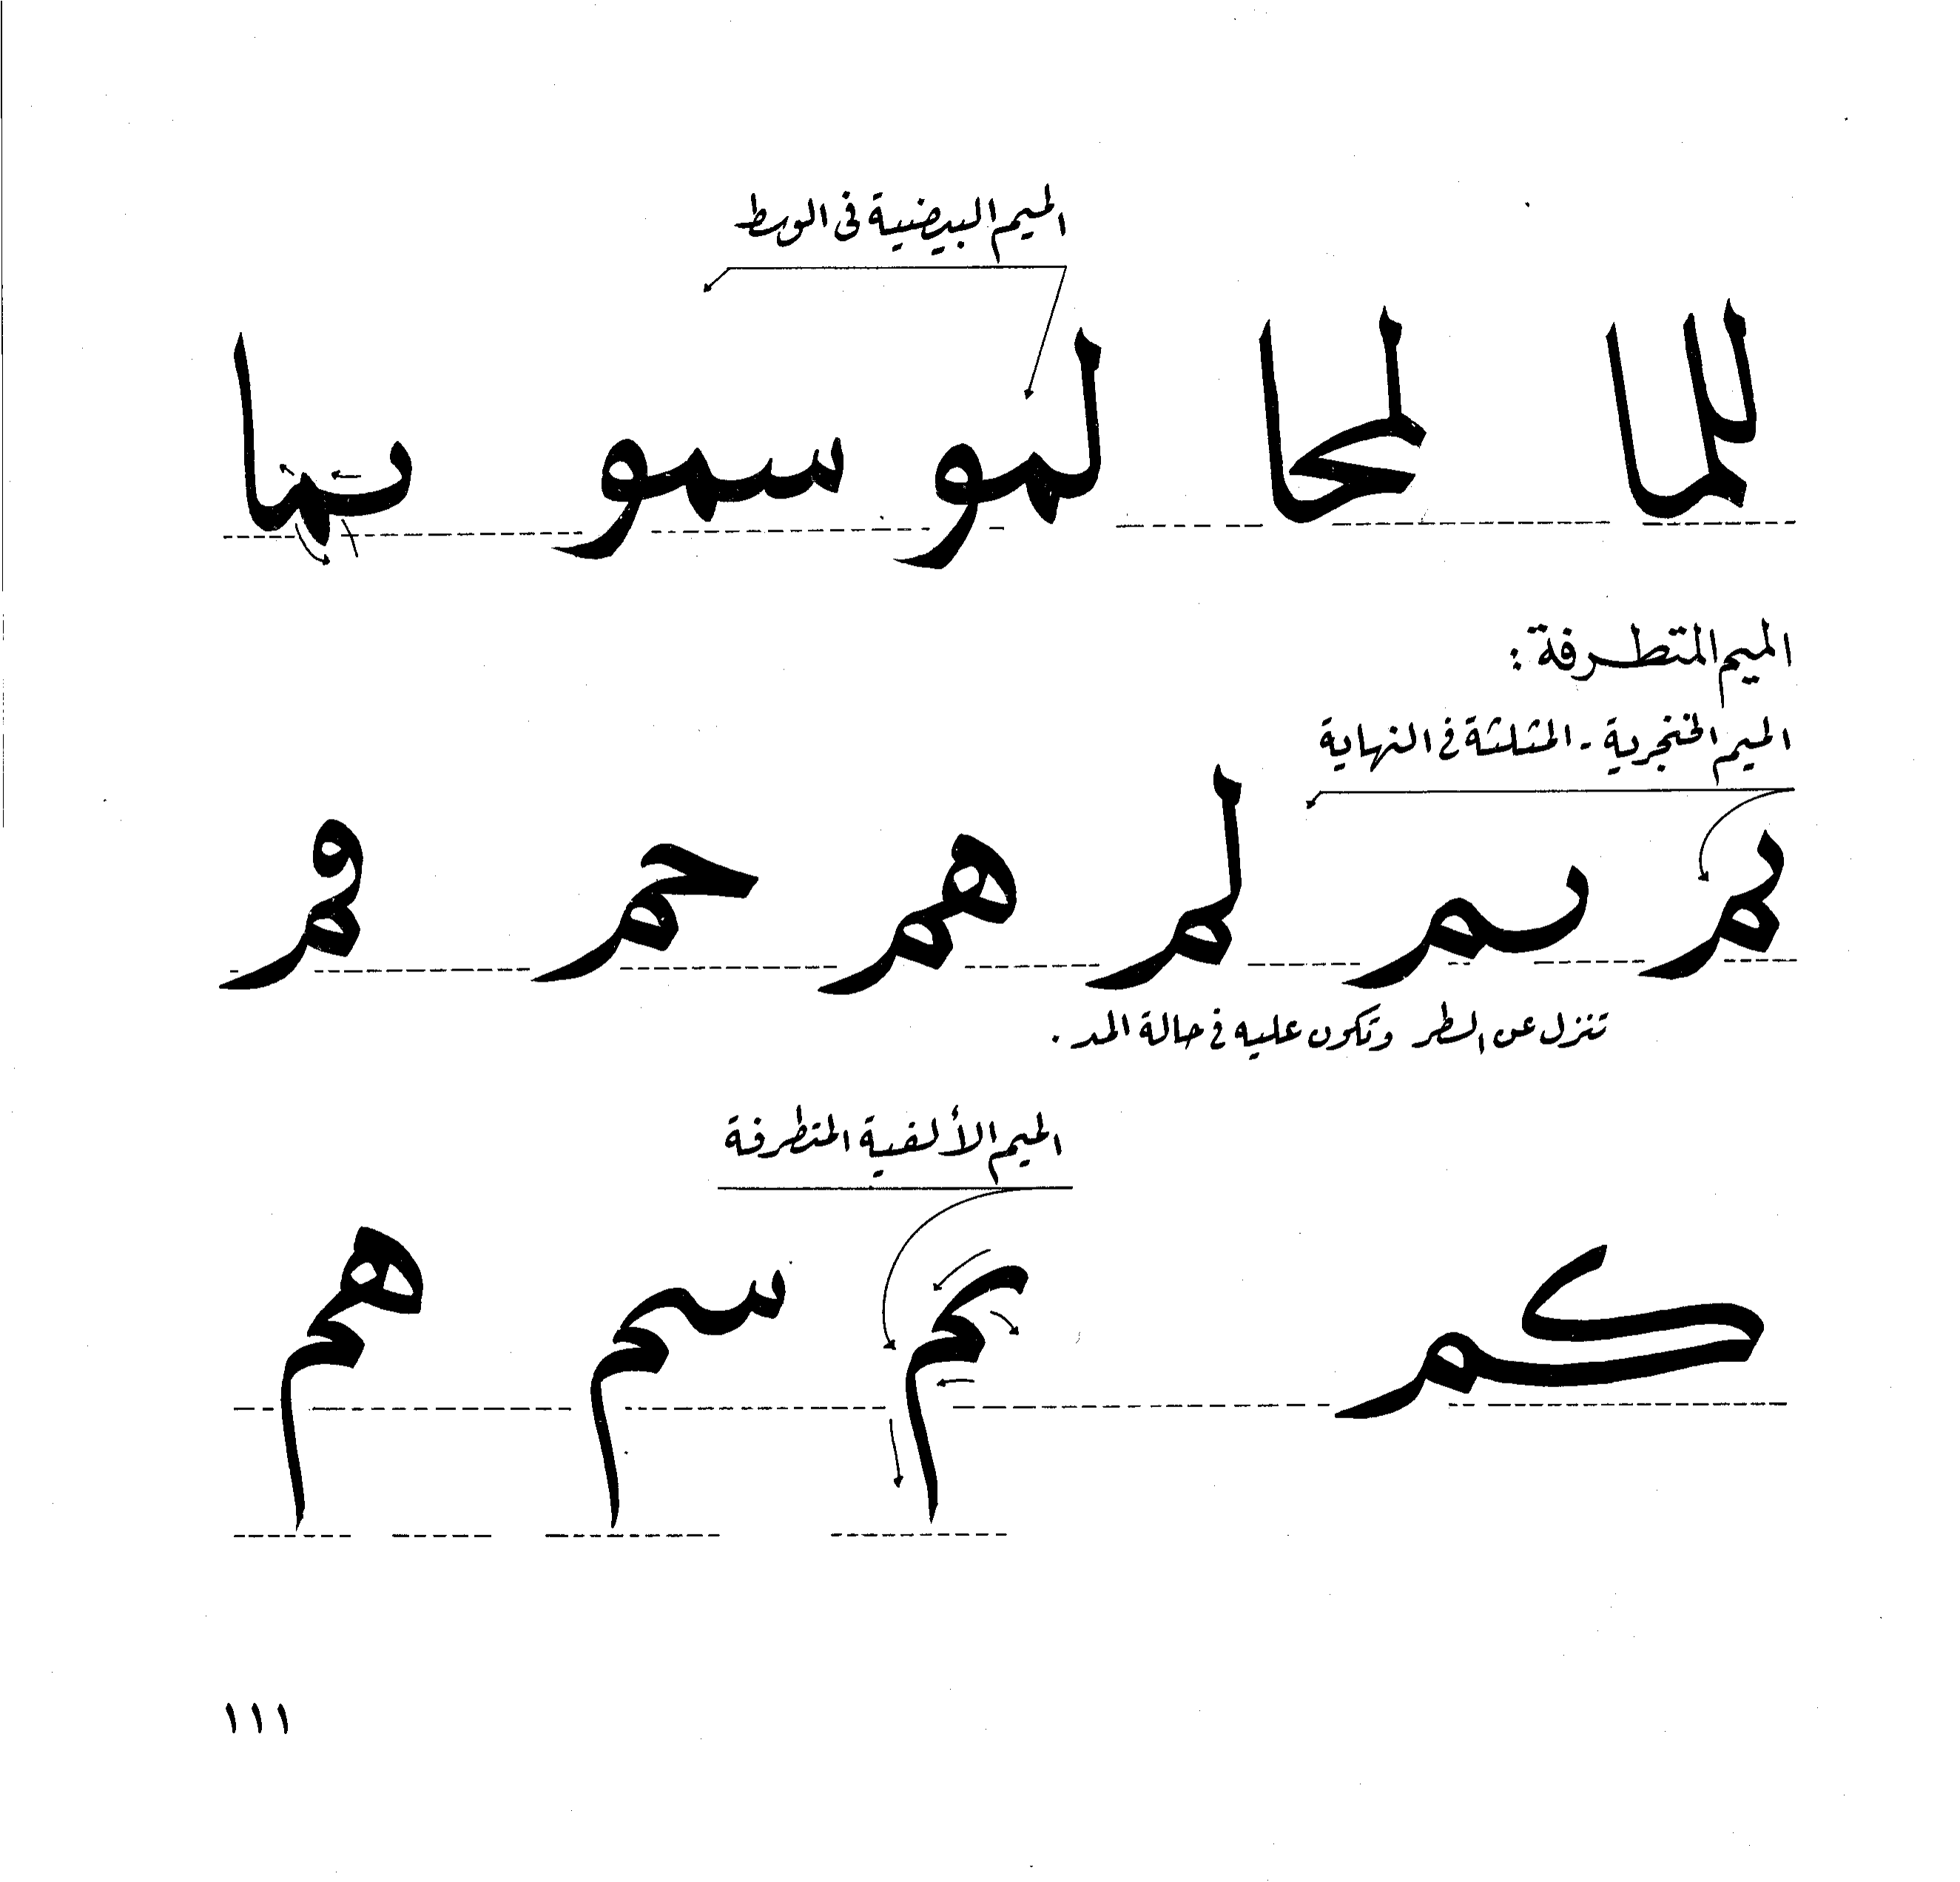 الميم البيضية في الوسط
للما لمحا لمو سمو سما
الميم المتطرفة :
الميم الخنجرية - المثلثة في النهاية
مم سم لم هم حم فم
تنزل عن السطر وتكون عليه في حالة المد .
الميم الألفية المتطرفة
كم سم هم
١١١